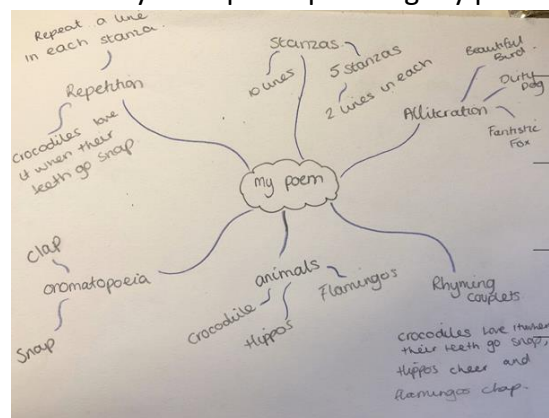 Repeat a line
in each stanza.
Repetition
crocodiles love
it when their
teeth go snap
Stanzas
10 lines
5 stanzas
2 lines in each
Alliteration
Beautiful
Bird.
Dirty
Dog
Fantistic
Fox
my poem
clap
onomatopoeia
Snap
animals
Crocodile
Hippos
Flamingos
Rhyming
couplets
crocodiles love it when
their teeth go snap,
Hippos cheer and
flamingos clap.